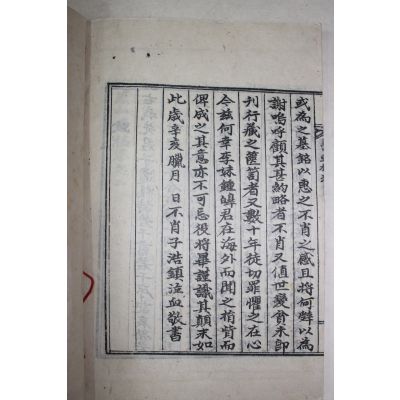 或為之墓銘以惠之不肖之感且將何辭以為
謝嗚呼顧其甚約略者不肖又值世變貧未卽
刊行藏之篋笥者又數十年徒切罪懼之在心
今玆何幸李妹鍾皥君在海外而聞之捐貲而
俾成之其意亦不可忘役將畢謹識其顚末如
此歲辛亥臘月 日不肖子浩鎭泣血敬書